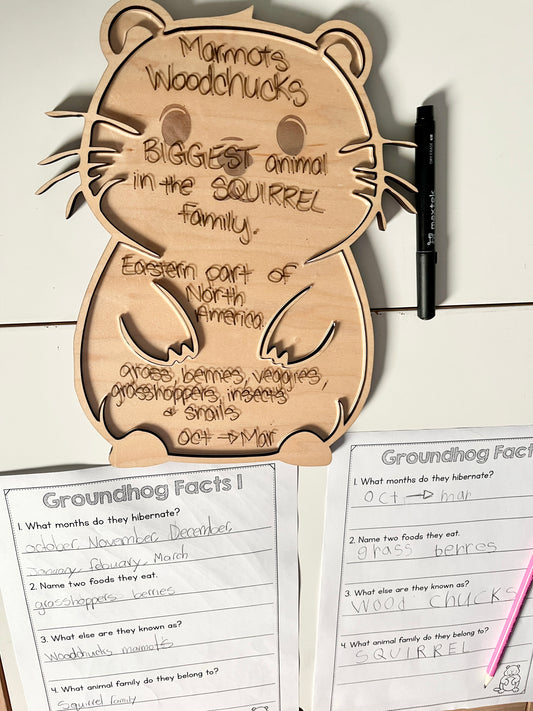 Marmots
Woodchucks
BIGGEST animal
in the SQUIRREL
family.
Eastern part of
North
America.
grass, berries, veggies,
grasshoppers, insects
& snails
Oct → Mar
maxtek
DRY ERASE
Groundhog Facts 1
1. What months do they hibernate?
october, November, December,
January, Febuary, March
2. Name two foods they eat.
grasshoppers berries
3. What else are they known as?
woodchucks marmots
4. What animal family do they belong to?
Squirrel family
Groundhog Fact
1. What months do they hibernate?
oct → mar
2. Name two foods they eat.
grass berres
3. What else are they known as?
WOOD CHUCKS
4. What animal family do they belong to?
SQUIRREL